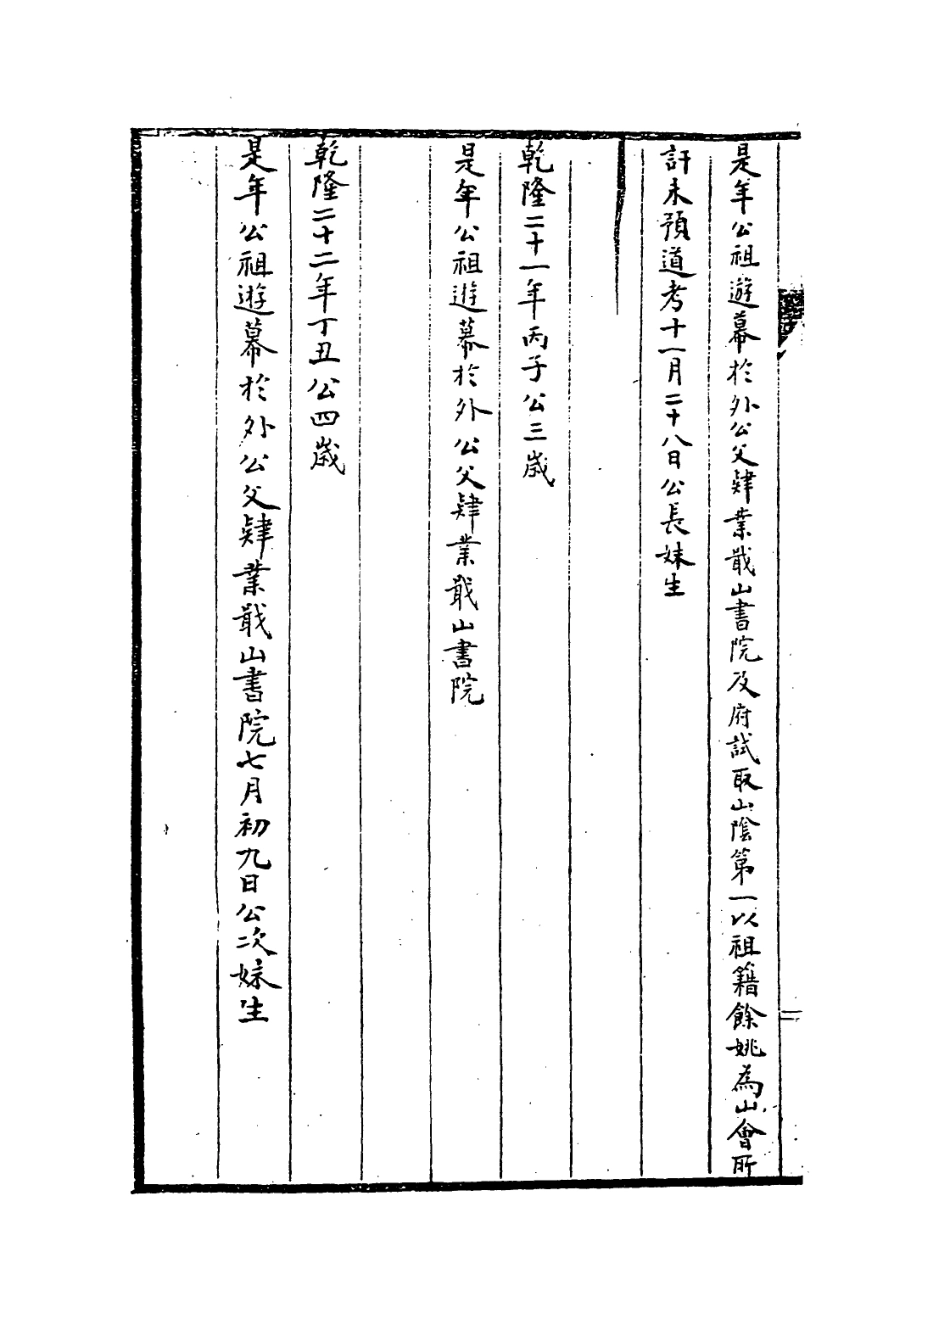 是年公祖遊幕於外公父肄業戢山書院及府試取山陰第一以祖籍餘姚為山會所
訐未預道考十一月二十八日公長妹生
乾隆二十一年丙子公三歲
是年公祖遊幕於外公父肄業戢山書院
乾隆二十二年丁丑公四歲
是年公祖遊幕於外公父肄業戢山書院七月初九日公次妹生
二